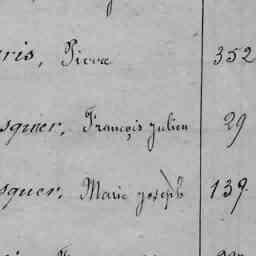 ris, Pierre 352
squier, François Julien 29
squer, Marie Joseph 139